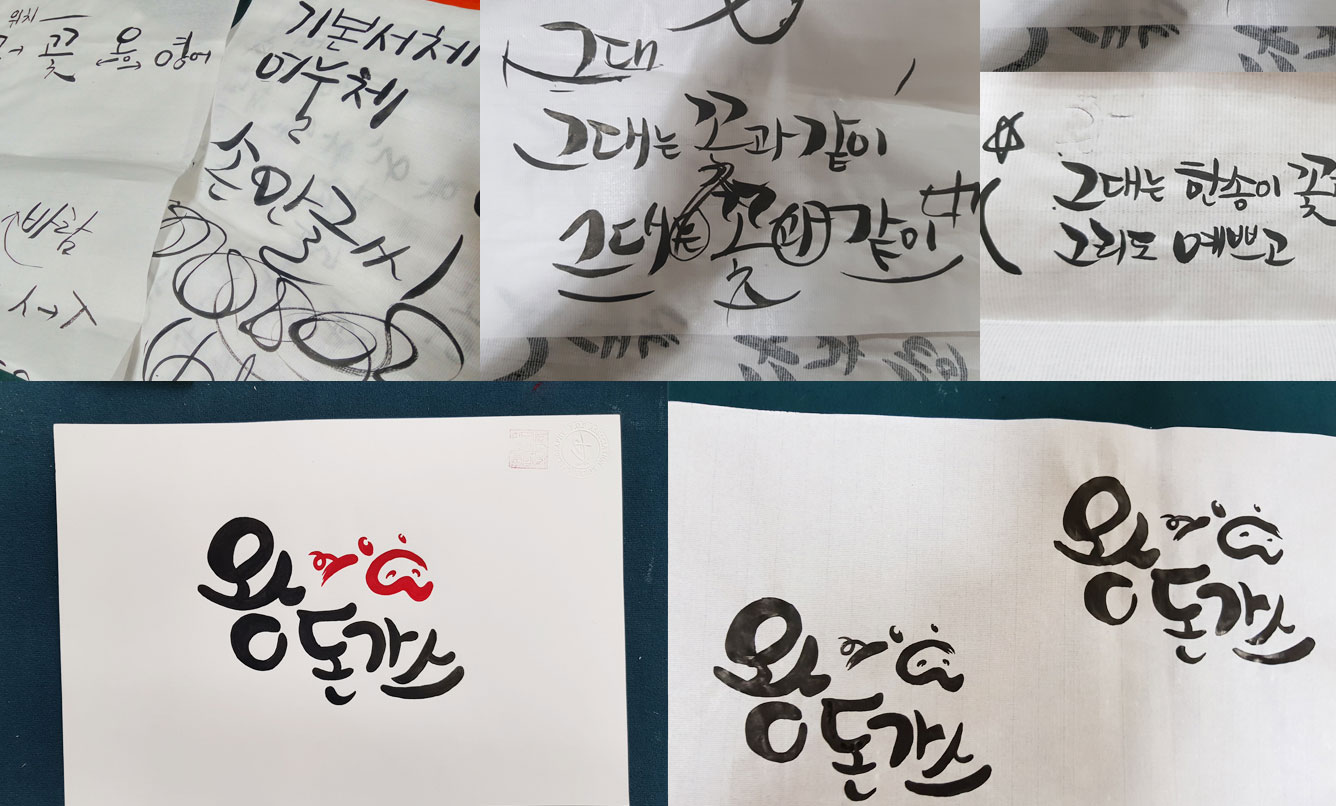 위치
꽃 용 영어
바람
ㅅ→ㅅ
기본서체
어눌체
손맏글시
그대
그대는 꼬과 같이
그대는 꼬과 같이
ㅊ
그대는 한송이 꽃
그리도 예쁘고
왕
돈가스
왕
돈가스
왕
돈가스